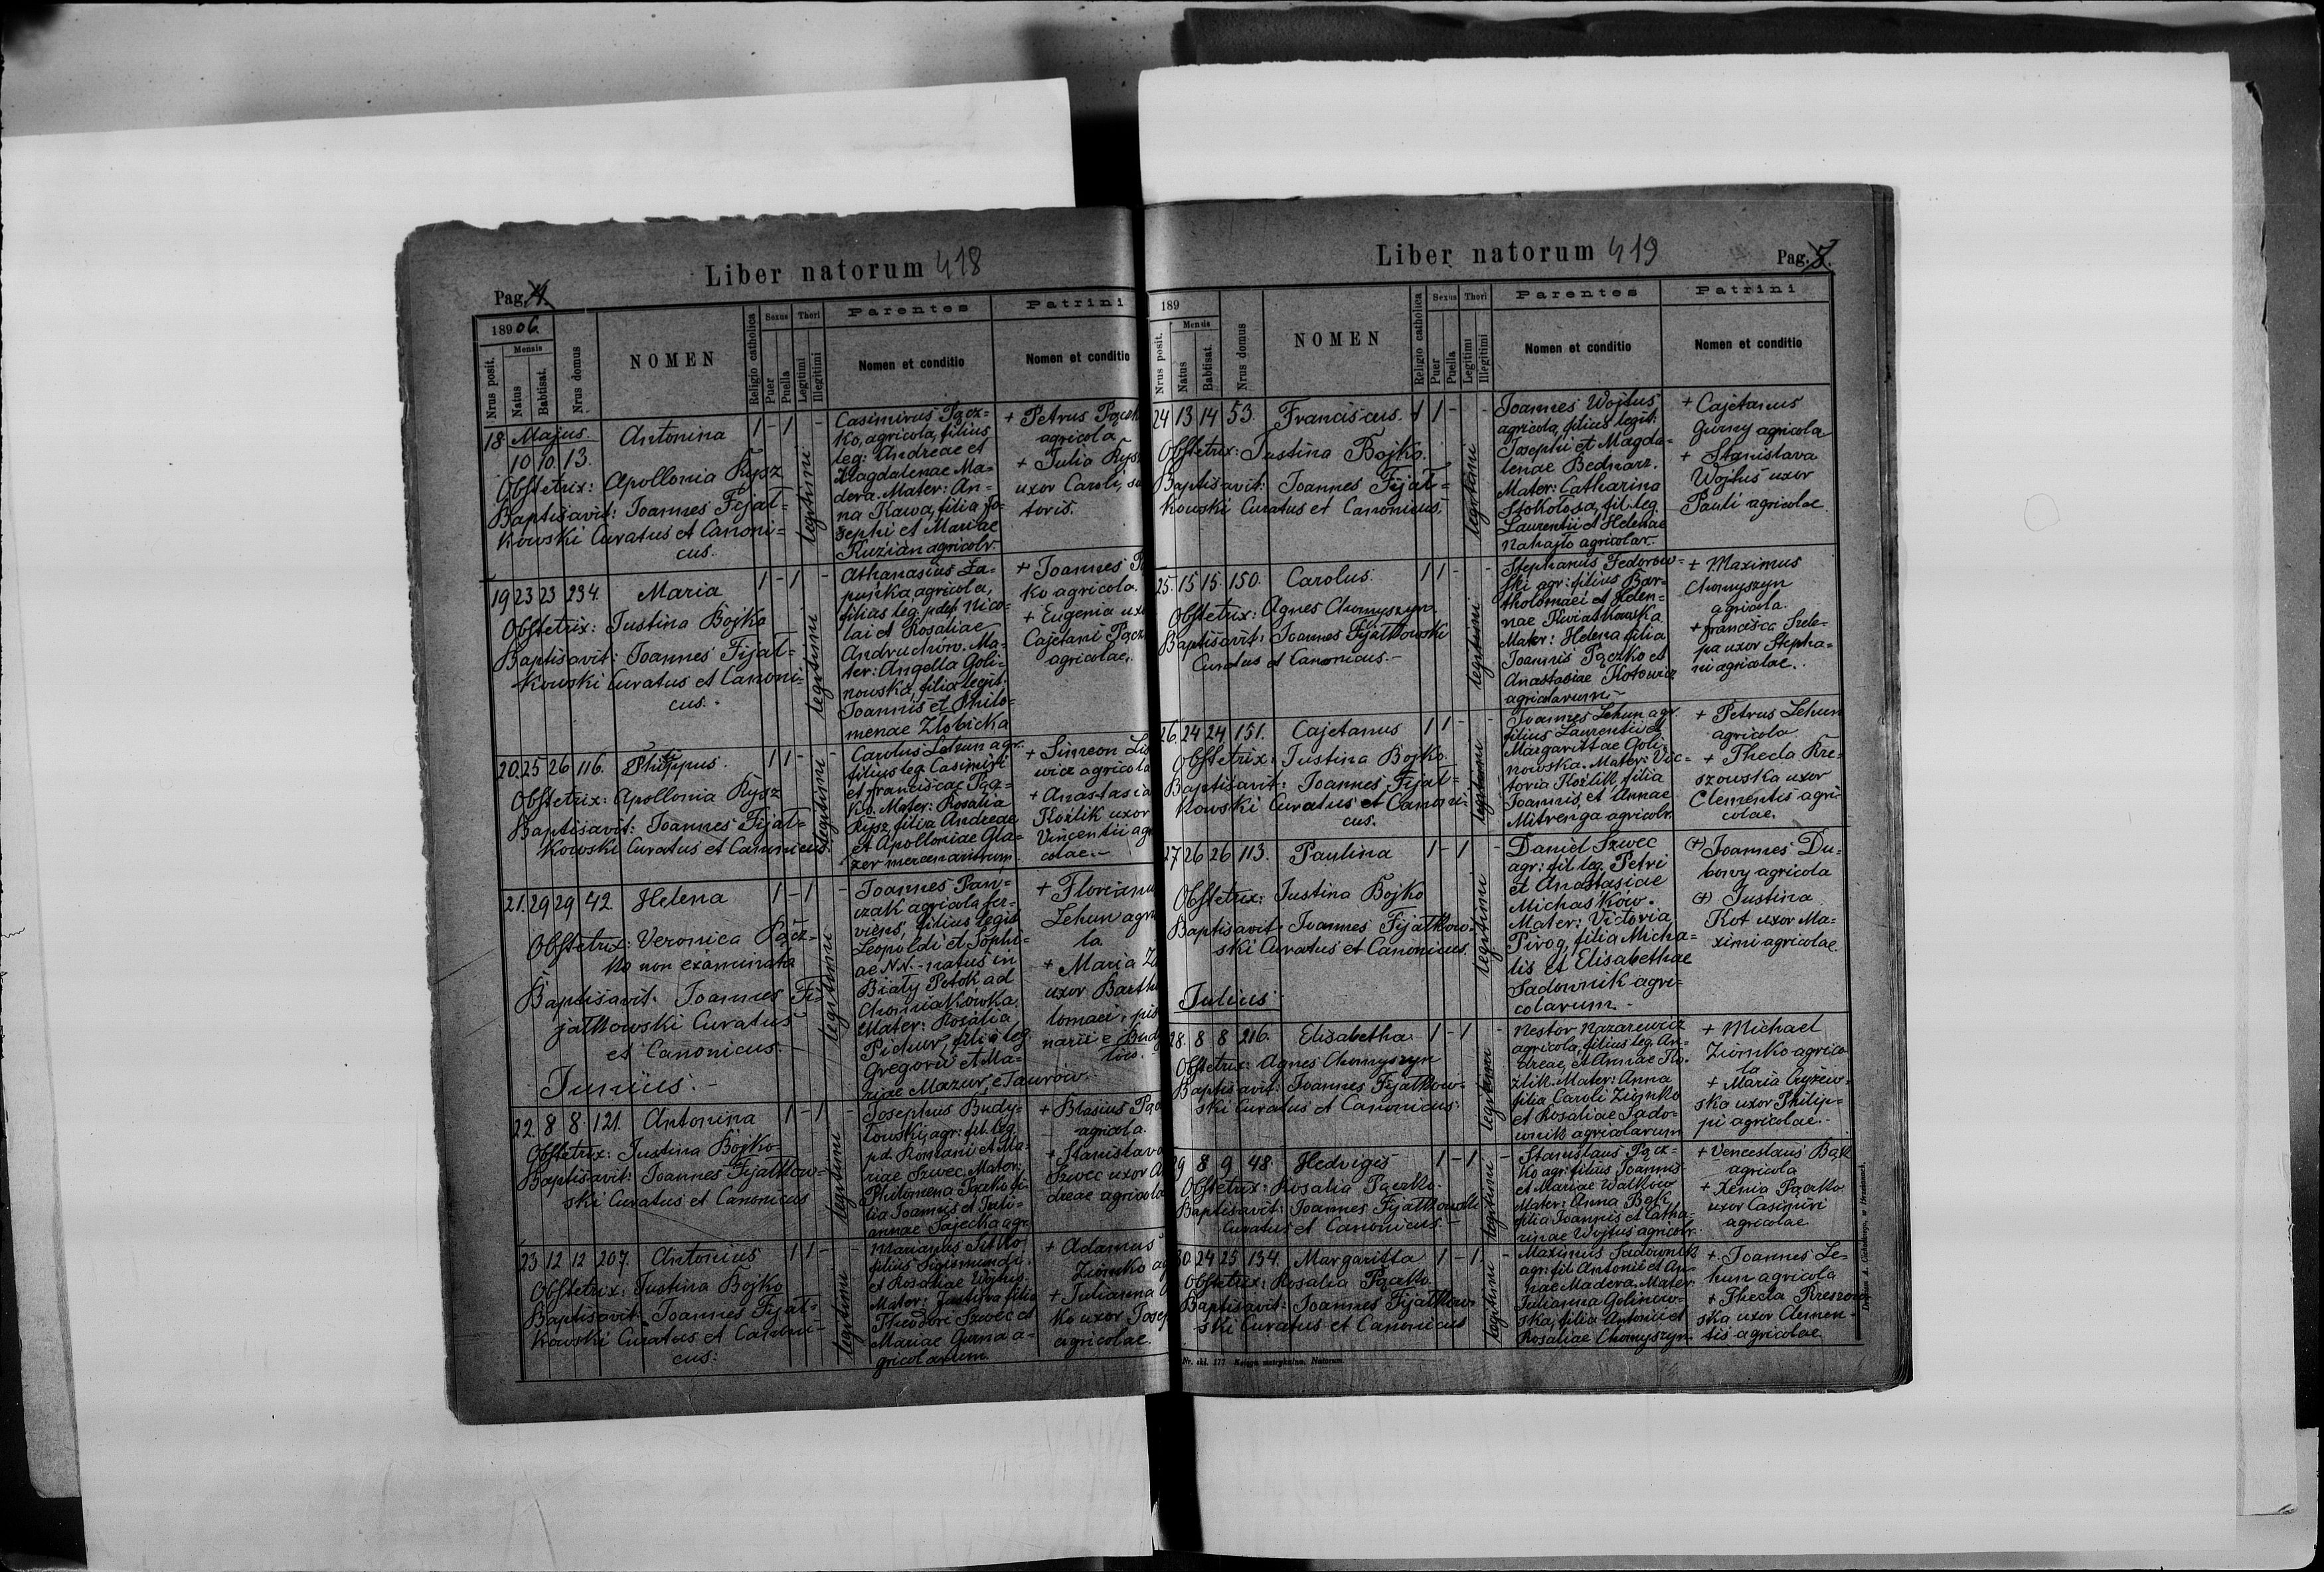 Liber natorum 418
Pag. 4.
1906.
Nrus posit.
Mensis
Natus
Babtisat.
Nrus domus
NOMEN
Religio catholica
Sexus
Puer
Puella
Thori
Legitimi
Illegitimi
Parentes
Nomen et conditio
Patrini
Nomen et conditio
18 Majus. 10 10 13. Antonina 1 - 1 -
Obstetrix: Apollonia Rysz
Baptisavit: Joannes Fijał=
kowski Curatus et Canoni=
cus.
legitimi
Casimirus Pącz=
ko, agricola, filius
leg: Andreae et
Magdalenae Ma=
dera. Mater: An=
na Kawa, filia Jo=
sephi et Mariae
Kuzian agricolr.
+ Petrus
agricola
+ Julia
uxor Caroli,
toris.
19 23 23 234. Maria 1 - 1 -
Obstetrix: Justina Bojko
Baptisavit: Joannes Fijał=
kowski Curatus et Canoni=
cus.
legitimi
Athanasius Ła=
puńka agricola,
filius leg. pdef. Nico=
lai et Rosaliae
Andruchów. Ma=
ter: Angella Goli=
nowska, filia legit.
Joannis et Philo=
menae Złobicka
+ Joannes
ko agricola.
+ Eugenia
Cajetani
agricolae.
20. 25 26 116. Philippus. 1 1 - -
Obstetrix: Apollonia Rysz
Baptisavit: Joannes Fijał=
kowski Curatus et Canonicus.
legitimi
Carolus Lehun agr.
filius leg. Casimiri
et Franciscae Pącz=
ko. Mater: Rosalia
Rysz, filia Andreae
et Apolloniae Gła=
zer mercenariorum.
+ Simeon
wicz agricola
+ Anastasia
Koźlik uxor
Vincentii
colae.-
21. 29 29 42. Helena 1 - 1 -
Obstetrix: Veronica Pącz=
ko non examinata
Baptisavit: Joannes Fi=
jałkowski Curatus
et Canonicus.-
legitimi
Joannes Pan=
czak agricola ser=
viens, filius legit
Leopoldi et Sophi=
ae N.N.- natus in
Biały Potok ad
Chomiakówka.
Mater: Rosalia
Pichur, filia leg.
Gregorii et Ma=
riae Mazur, e Taurów.
+ Florianus
Lehun
la
+ Maria
uxor
lomaei,
narii e
Junius.-
22. 8 8 121. Antonina 1 - 1 -
Obstetrix: Justina Bojko
Baptisavit: Joannes Fijałkow=
ski Curatus et Canonicus
legitimi
Josephus Budy=
łowski, agr: fil. leg.
pd. Romani et Ma=
riae Szwec. Mater:
Philomena Pączko fi=
lia Joannis et Juli=
annae Sajecka agr.
+ Blasius
agricola.
+ Stanislava
Szwec uxor
dreae agricola
23 12 12 207. Antonius 1 1 - -
Obstetrix: Justina Bojko
Baptisavit: Joannes Fijał=
kowski Curatus et Canoni=
cus:
legitimi
Marianus
filius Sigismundi
et Rosaliae Wojtus.
Mater: Justina filia
Theodori Szwec et
Mariae Gurna a=
gricolarum.
+ Adamus
Ziomko
+ Julianna
ko uxor
agricolae
Liber natorum 419
Pag. 5.
189
Nrus posit.
Mensis
Natus
Babtisat.
Nrus domus
NOMEN
Religio catholica
Sexus
Puer
Puella
Thori
Legitimi
Illegitimi
Parentes
Nomen et conditio
Patrini
Nomen et conditio
24 13 14 53. Franciscus. 1 1 - -
Obstetrix: Justina Bojko.
Baptisavit: Joannes Fijał=
kowski Curatus et Canonicus.
legitimi
Joannes Wojtus
agricola, filius legit.
Josephi et Magda=
lenae Bednarz.
Mater: Catharina
Stokołosa, fil. leg.
Laurentii et Helenae
Nahajło agricolar.
+ Cajetanus
Gurny agricola
+ Stanislava
Wojtus uxor
Pauli agricolae.
25. 15 15 150. Carolus. 1 1 - -
Obstetrix: Agnes Chomyszyn.
Baptisavit: Joannes Fijałkowski
Curatus et Canonicus.-
legitimi
Stephanus Fedorow=
ski agr: filius Bar=
tholomaei et Helen=
nae Kwiatkowska
Mater: Helena filia
Joannis Pączko et
Anastasiae Kotowicz
agricolarum.-
+ Maximus
Chomyszyn
agricola.
+ Francisca Szele=
pa uxor Stepha=
ni agricolae.
26. 24 24 151. Cajetanus 1 1 - -
Obstetrix: Justina Bojko
Baptisavit: Joannes Fijał=
kowski Curatus et Canoni=
cus.
legitimi
Joannes Lehun agr.
filius Laurentii et
Margarittae Goli=
nowska. Mater: Vic=
toria Koźlik filia
Joannis, et Annae
Mitrenga agricolr.
+ Petrus Lehun
agricola
+ Thecla Kre=
szowska uxor
Clementis agri=
colae.
27 26 26 113. Paulina 1 - 1 -
Obstetrix: Justina Bojko
Baptisavit: Joannes Fijałkow=
ski Curatus et Canonicus.
legitimi
Daniel Szwec
agr: fil. leg. Petri
et Anastasiae
Michasków.
Mater: Victoria
Pirog, filia Micha=
lis et Elisabethae
Sadownik agri=
colarum.-
(+) Joannes Du=
bowy agricola
(+) Justina
Kot uxor Ma=
ximi agricolae.
Julius.
28. 8 8 216. Elisabetha 1 - 1 -
Obstetrix: Agnes Chomyszyn
Baptisavit: Joannes Fijałkow=
ski Curatus et Canonicus.
legitimi
Nestor Nazarewicz
agricola, filius leg. An=
dreae, et Annae Ko=
źlik. Mater: Anna
filia Caroli Ziomko
et Rosaliae Sado=
wnik agricolarum
+ Michael
Ziomko agrico
la
+ Maria Cryżew=
ska uxor Philip=
pi agricolae.-
29 8 9 48. Hedvigis 1 - 1 -
Obstetrix: Rosalia Pączko.
Baptisavit: Joannes Fijałkowski
Curatus et Canonicus.-
legitimi
Stanislaus Pącz=
ko agr: filius Joannis
et Mariae Walków
Mater: Anna Bąk,
filia Joannis et Catha=
rinae Wojtus agricolr.
+ Venceslaus Bąk
agricola
+ Xenia Pączko
uxor Casimiri
agricolae
30. 24 25 134. Margaritta 1 - 1. -
Obstetrix: Rosalia Pączko.
Baptisavit: Joannes Fijałkow=
ski Curatus et Canonicus
legitimi
Maximus Sadownik
agr: fil. Antonii et An=
nae Madera. Mater:
Julianna Golinow=
ska, filia Antonii et
Rosaliae Chomyszyn.
+ Joannes Le=
hun agricola
+ Thecla Kreszow
ska uxor Clemen=
tis agricolae
Nr. skł. 277 Księga metrykalna. Natorum.